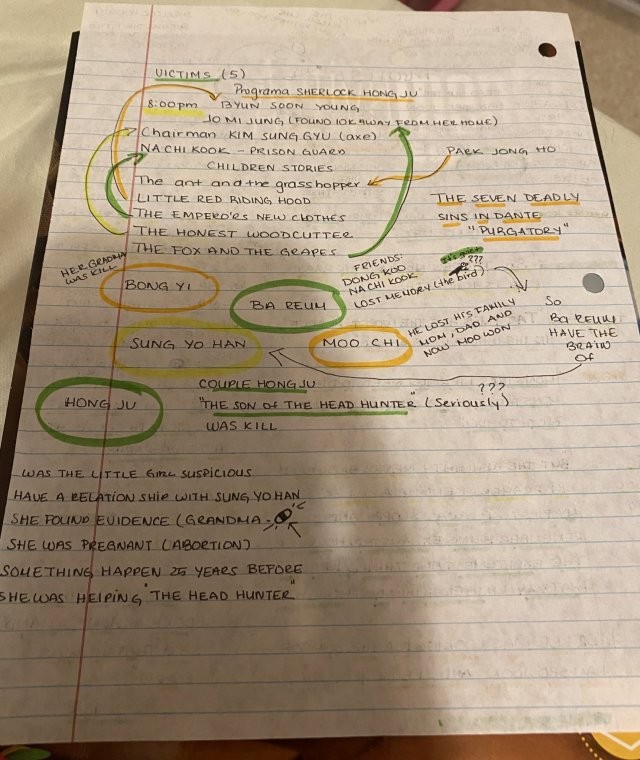 VICTIMS (5)
Programa SHERLOCK HONG JU
8:00pm BYUN SOON YOUNG
JO MI JUNG (FOUND 10K AWAY FROM HER HOME)
Chairman KIM SUNG GYU (axe)
NA CHI KOOK - PRISON GUARD
PARK JONG HO
CHILDREN STORIES
The ant and the grasshopper
LITTLE RED RIDING HOOD
THE EMPERO'ES NEW CLOTHES
THE HONEST WOODCUTTER
THE FOX AND THE GRAPES
THE SEVEN DEADLY
SINS IN DANTE
"PURGATORY"
HER GRADMA
WAS KILL
BONG YI
BA REUM
FRIENDS:
DONG KOO
NA CHI KOOK
LOST MEMORY (the bird)
???
SUNG YO HAN
MOO CHI
HE LOST HIS FAMILY
MOM, DAD AND
NOW MOO WON
So
BA REUM
HAVE THE
BRAIN
OF
HONG JU
COUPLE HONG JU
"THE SON OF THE HEAD HUNTER" (Seriously)
???
WAS KILL
WAS THE LITTLE GIRL SUSPICIOUS
HAVE A RELATION SHIP WITH SUNG YO HAN
SHE FOUND EVIDENCE (GRANDMA -
SHE WAS PREGNANT (ABORTION)
SOMETHING HAPPEN 25 YEARS BEFORE
SHE WAS HELPING "THE HEAD HUNTER"